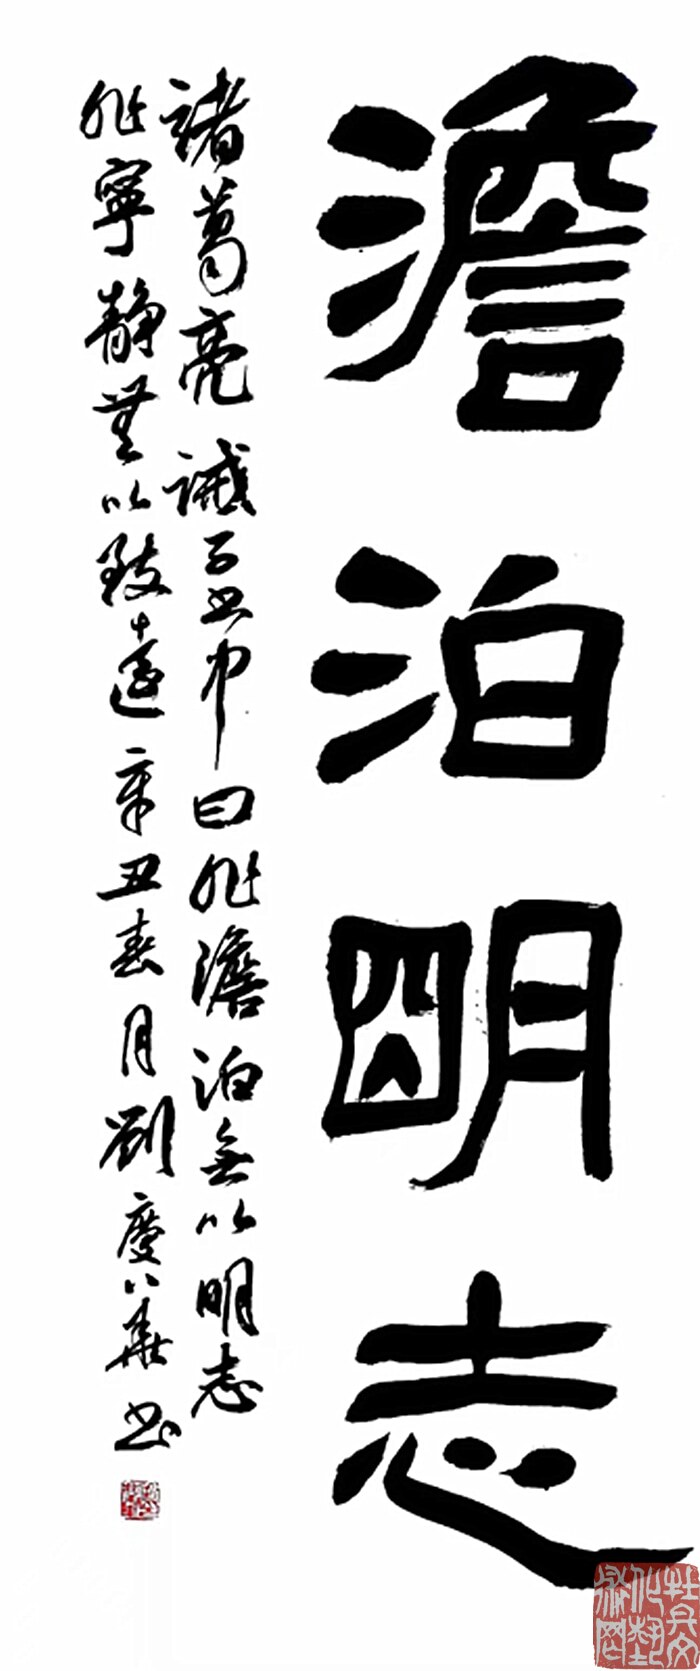 澹泊明志
諸葛亮誡子书中曰非澹泊無以明志
非寧静無以致遠辛丑春月劉慶華书